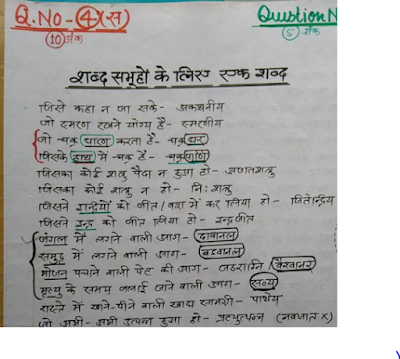 Q.No-④(स)
(10)अंक
Qustion N
5-अंक
शब्द समूहों के लिए एक शब्द
जिसे कहा न जा सके - अकथनीय
जो स्मरण रखने योग्य है - स्मरणीय
जो चक्र धारण करता है - चक्रधर
जिसके हाथ में चक्र है - चक्रपाणि
जिसका कोई शत्रु पैदा न हुआ हो - अजातशत्रु
जिसका कोई शत्रु न हो - नि:शत्रु
जिसने इन्द्रियों को जीत/वश में कर लिया हो - जितेन्द्रिय
जिसने इन्द्र को जीत लिया हो - इन्द्रजीत
जंगल में लगने वाली आग - दावानल
समुद्र में लगने वाली आग - बडवानल
भोजन पचाने वाली पेट की आग - जठराग्नि/वैश्वानर
मृत्यु के समय जलाई जाने वाली आग -
रास्ते में खाने-पीने वाली खाद्य सामग्री - पाथेय
जो अभी-अभी उत्पन्न हुआ हो - प्रत्युत्पन्न (नवजात X)